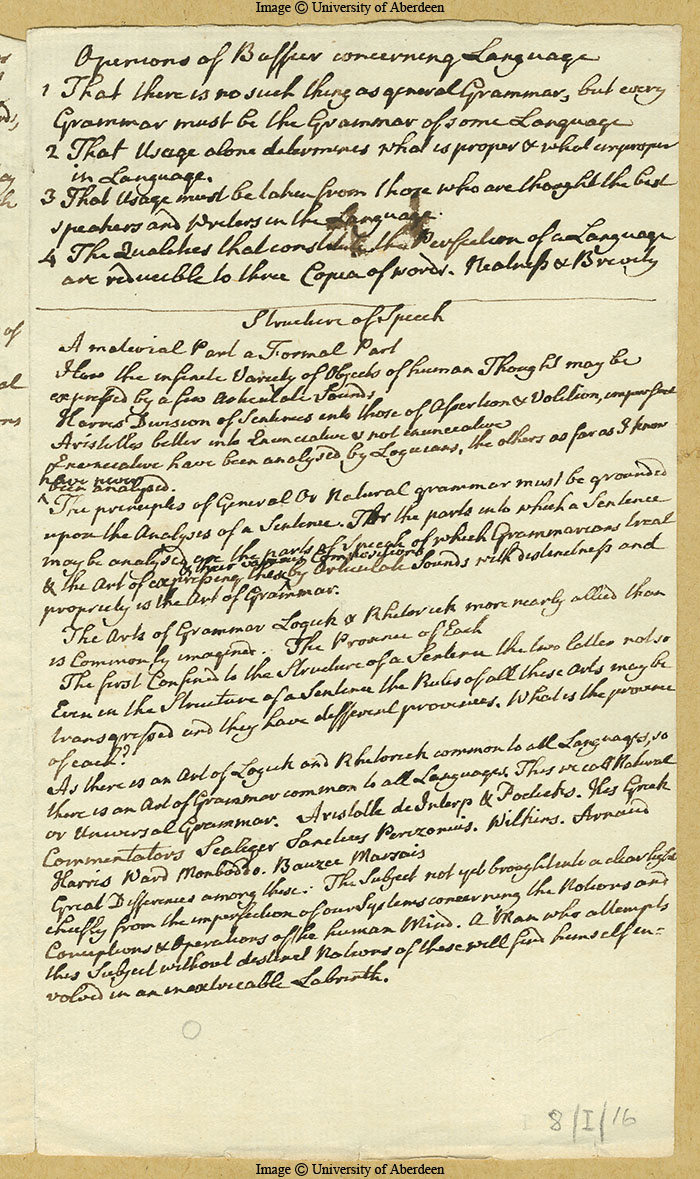 Image © University of Aberdeen
Opinions of Buffier concerning Language
1 That there is no such thing as general Grammar, but every
Grammar must be the Grammar of some Language
2 That Usage alone determines what is proper & what improper
in Language.
3 That Usage must be taken from those who are thought the best
speakers and Writers in the Language.
4 The Qualities that constitute the Perfection of a Language
are reducible to three Copia of words. Neatness & Brevity
Structure of Speech
A material Part a Formal Part
How the infinite Variety of Objects of human Thought may be
expressed by a few Articulate Sounds
Harris Division of Sentences into those of Assertion & Volition, imperfect
Aristotles better into Enunciative & not enunciative
Enunciative have been analysed by Logicians, the others as far as I know
have never
^ been analysed.
The principles of General Or Natural grammar must be grounded
upon the Analysis of a Sentence. For the parts into which a Sentence
may be analysed are the parts of Speech of which Grammarians treat
& their various Compositions
& the Art of expressing these by Articulate Sounds with distinctness and
propriety is the Art of Grammar.
The Arts of Grammar Logick & Rhetorick more nearly allied than
is Commonly imagined. The Province of Each
The first Confined to the Structure of a Sentence the two latter not so
Even in the Structure of a Sentence the Rules of all these Arts may be
transgressed and they have different provinces. What is the province
of each?
As there is an Art of Logick and Rhetorick common to all Languages, so
there is an Art of Grammar common to all Languages. This we call Natural
or Universal Grammar. Aristotle de Interp & Poeticks. His Greek
Commentators Scaliger Sanctius Perizonius. Wilkins. Arnaud
Harris Ward Monboddo. Bauzee Marsais
Great Differences among these. The Subject not yet brought into a clear light
chiefly from the imperfection of our Systems concerning the Notions and
Conceptions & Operations of the human Mind. A Man who attempts
this Subject without distinct Notions of these will find himself in-
volvd in an inextricable Labrinth.
8/I/16
Image © University of Aberdeen